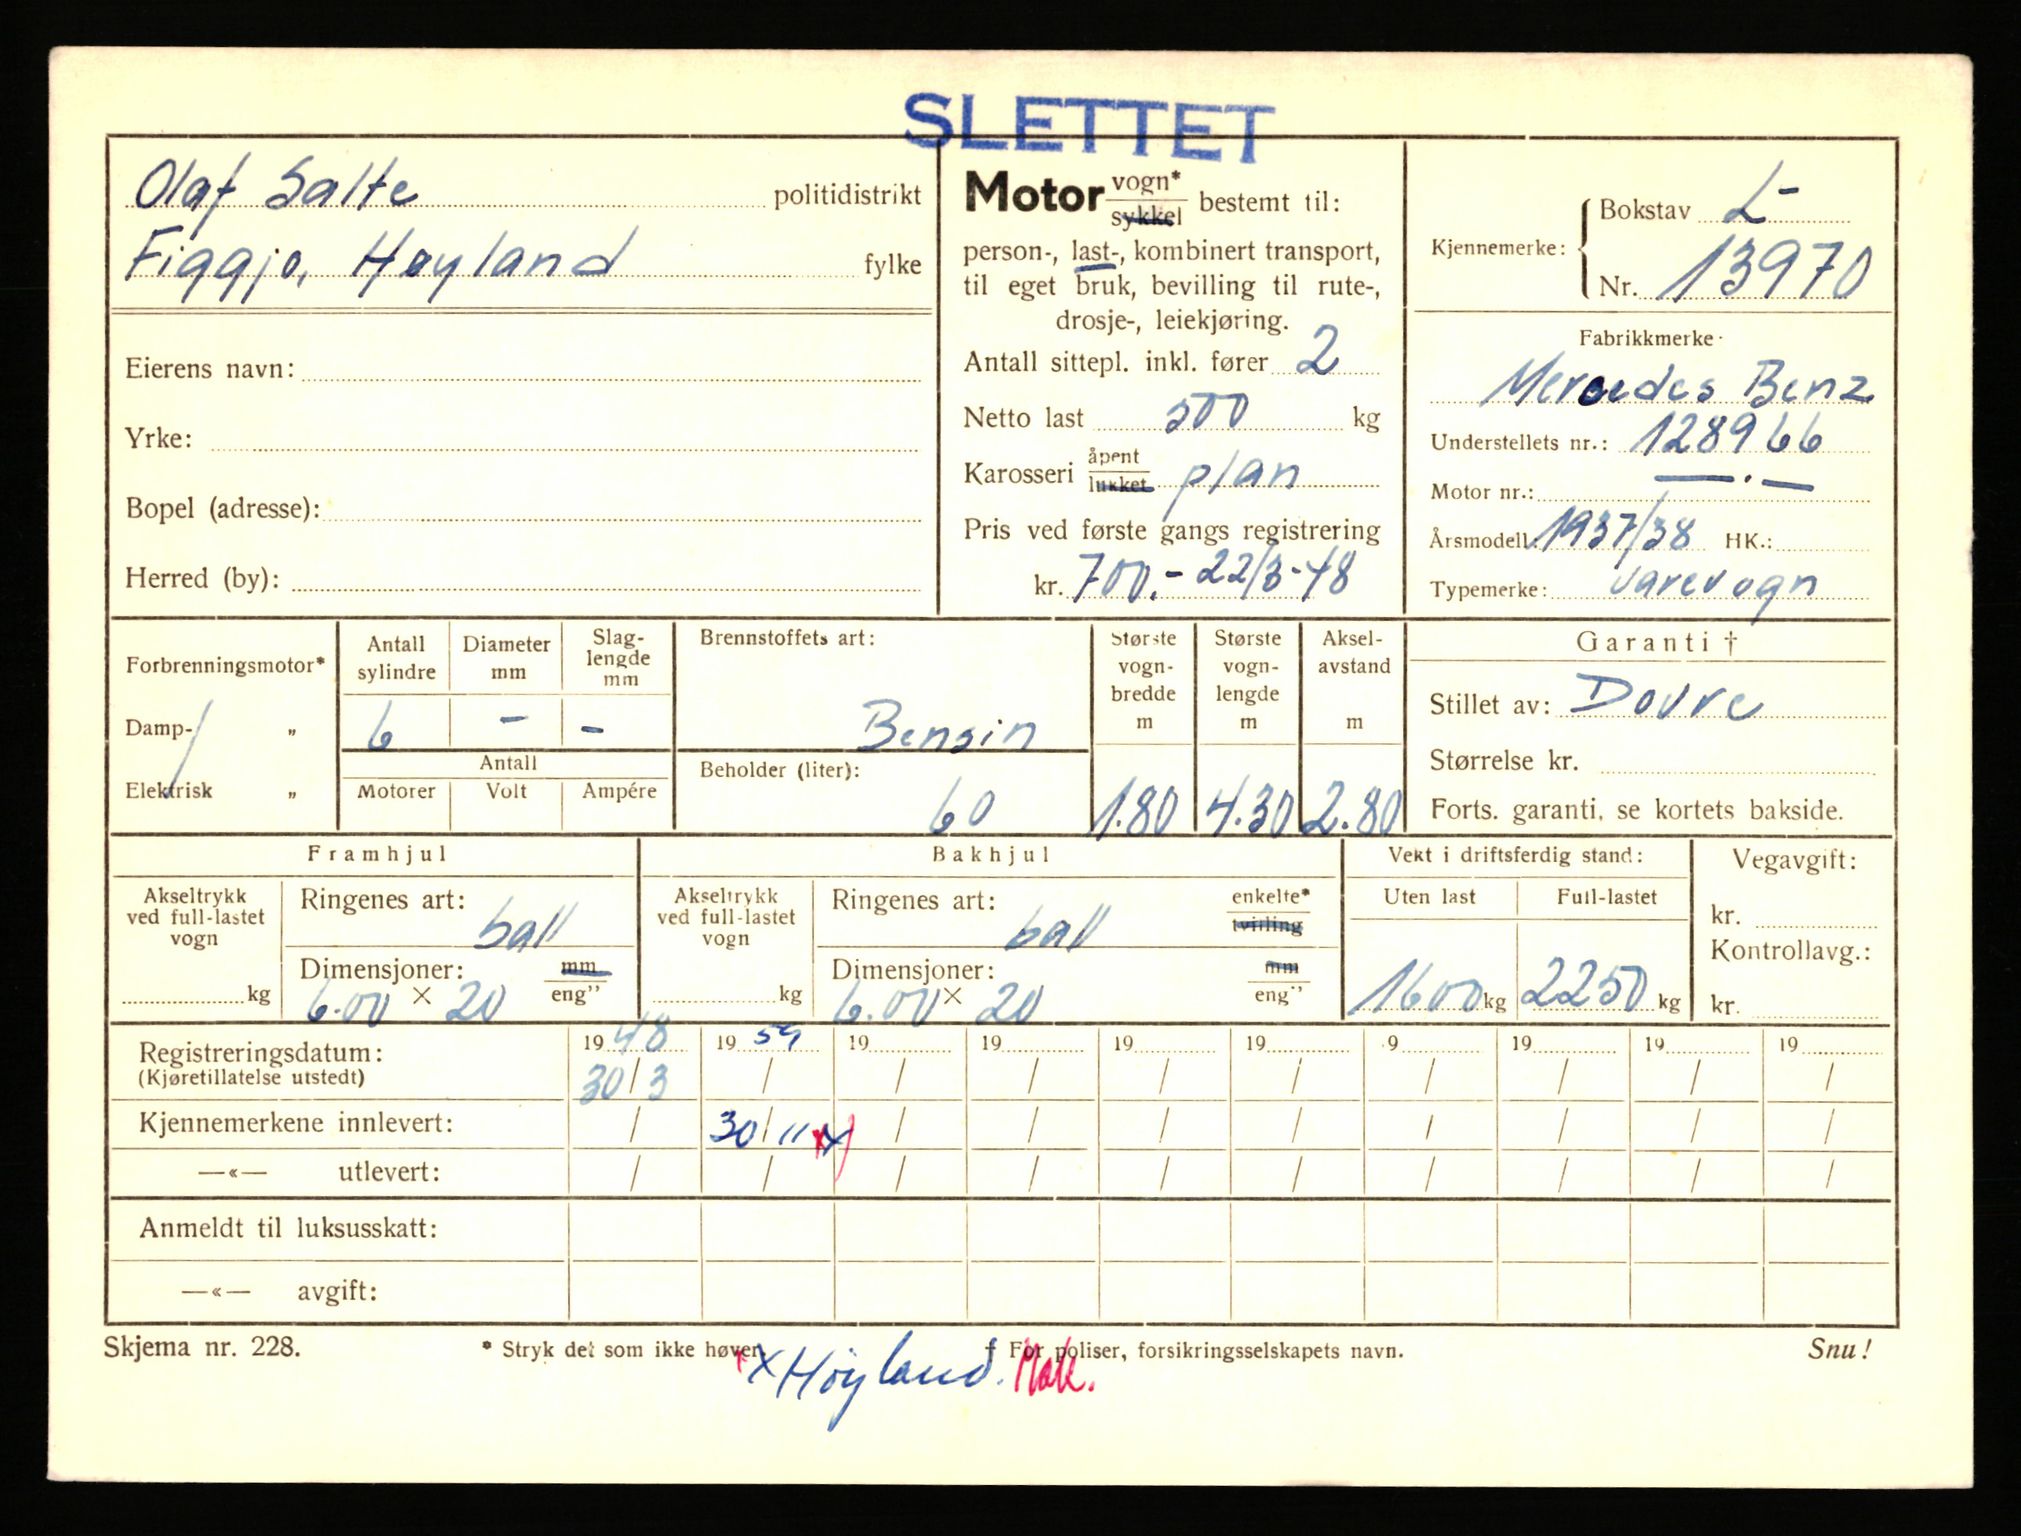 SLETTET
Olaf Salte politidistrikt
Figgjo, Høyland fylke
Eierens navn:
Yrke:
Bopel (adresse):
Herred (by):
Motor vogn* sykkel bestemt til:
person-, last-, kombinert transport,
til eget bruk, bevilling til rute-,
drosje-, leiekjøring.
Antall sittepl. inkl. fører 2
Netto last 500 kg
Karosseri åpent lukket plan
Pris ved første gangs registrering
kr. 700.- 22/3-48
Kjennemerke: Bokstav L-
Nr. 13970
Fabrikkmerke
Mercedes Benz
Understellets nr.: 128966
Motor nr.: — . —
Årsmodell: 1937/38 HK.:
Typemerke: varevogn
Forbrenningsmotor*
Damp- „
Elektrisk „
Antall sylindre 6
Diameter mm -
Slag-lengde mm -
Antall
Motorer Volt Ampére
Brennstoffets art:
Bensin
Beholder (liter):
60
Største vogn-bredde m 1.80
Største vogn-lengde m 4.30
Aksel-avstand m 2.80
Garanti †
Stillet av: Dovre
Størrelse kr.
Forts. garanti, se kortets bakside.
Framhjul
Akseltrykk ved full-lastet vogn
kg
Ringenes art: ball
Dimensjoner: mm eng”
6.00 × 20
Bakhjul
Akseltrykk ved full-lastet vogn
kg
Ringenes art: ball enkelte* tvilling
Dimensjoner: mm eng”
6.00 × 20
Vekt i driftsferdig stand:
Uten last Full-lastet
1600 kg 2250 kg
Vegavgift:
kr.
Kontrollavg.:
kr.
Registreringsdatum: 19 48 19 59 19 19 19 19 19 19 19 19
(Kjøretillatelse utstedt) 30/3 / / / / / / / / /
Kjennemerkene innlevert: / 30/11 x / / / / / / / /
—«— utlevert: / / / / / / / / / /
Anmeldt til luksusskatt:
—«— avgift:
Skjema nr. 228. * Stryk det som ikke høver. † For poliser, forsikringsselskapets navn. Snu!
x Høyland.